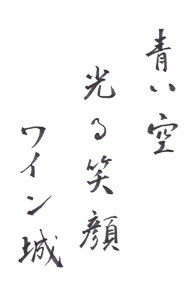 青い空
光る笑顔
ワイン城